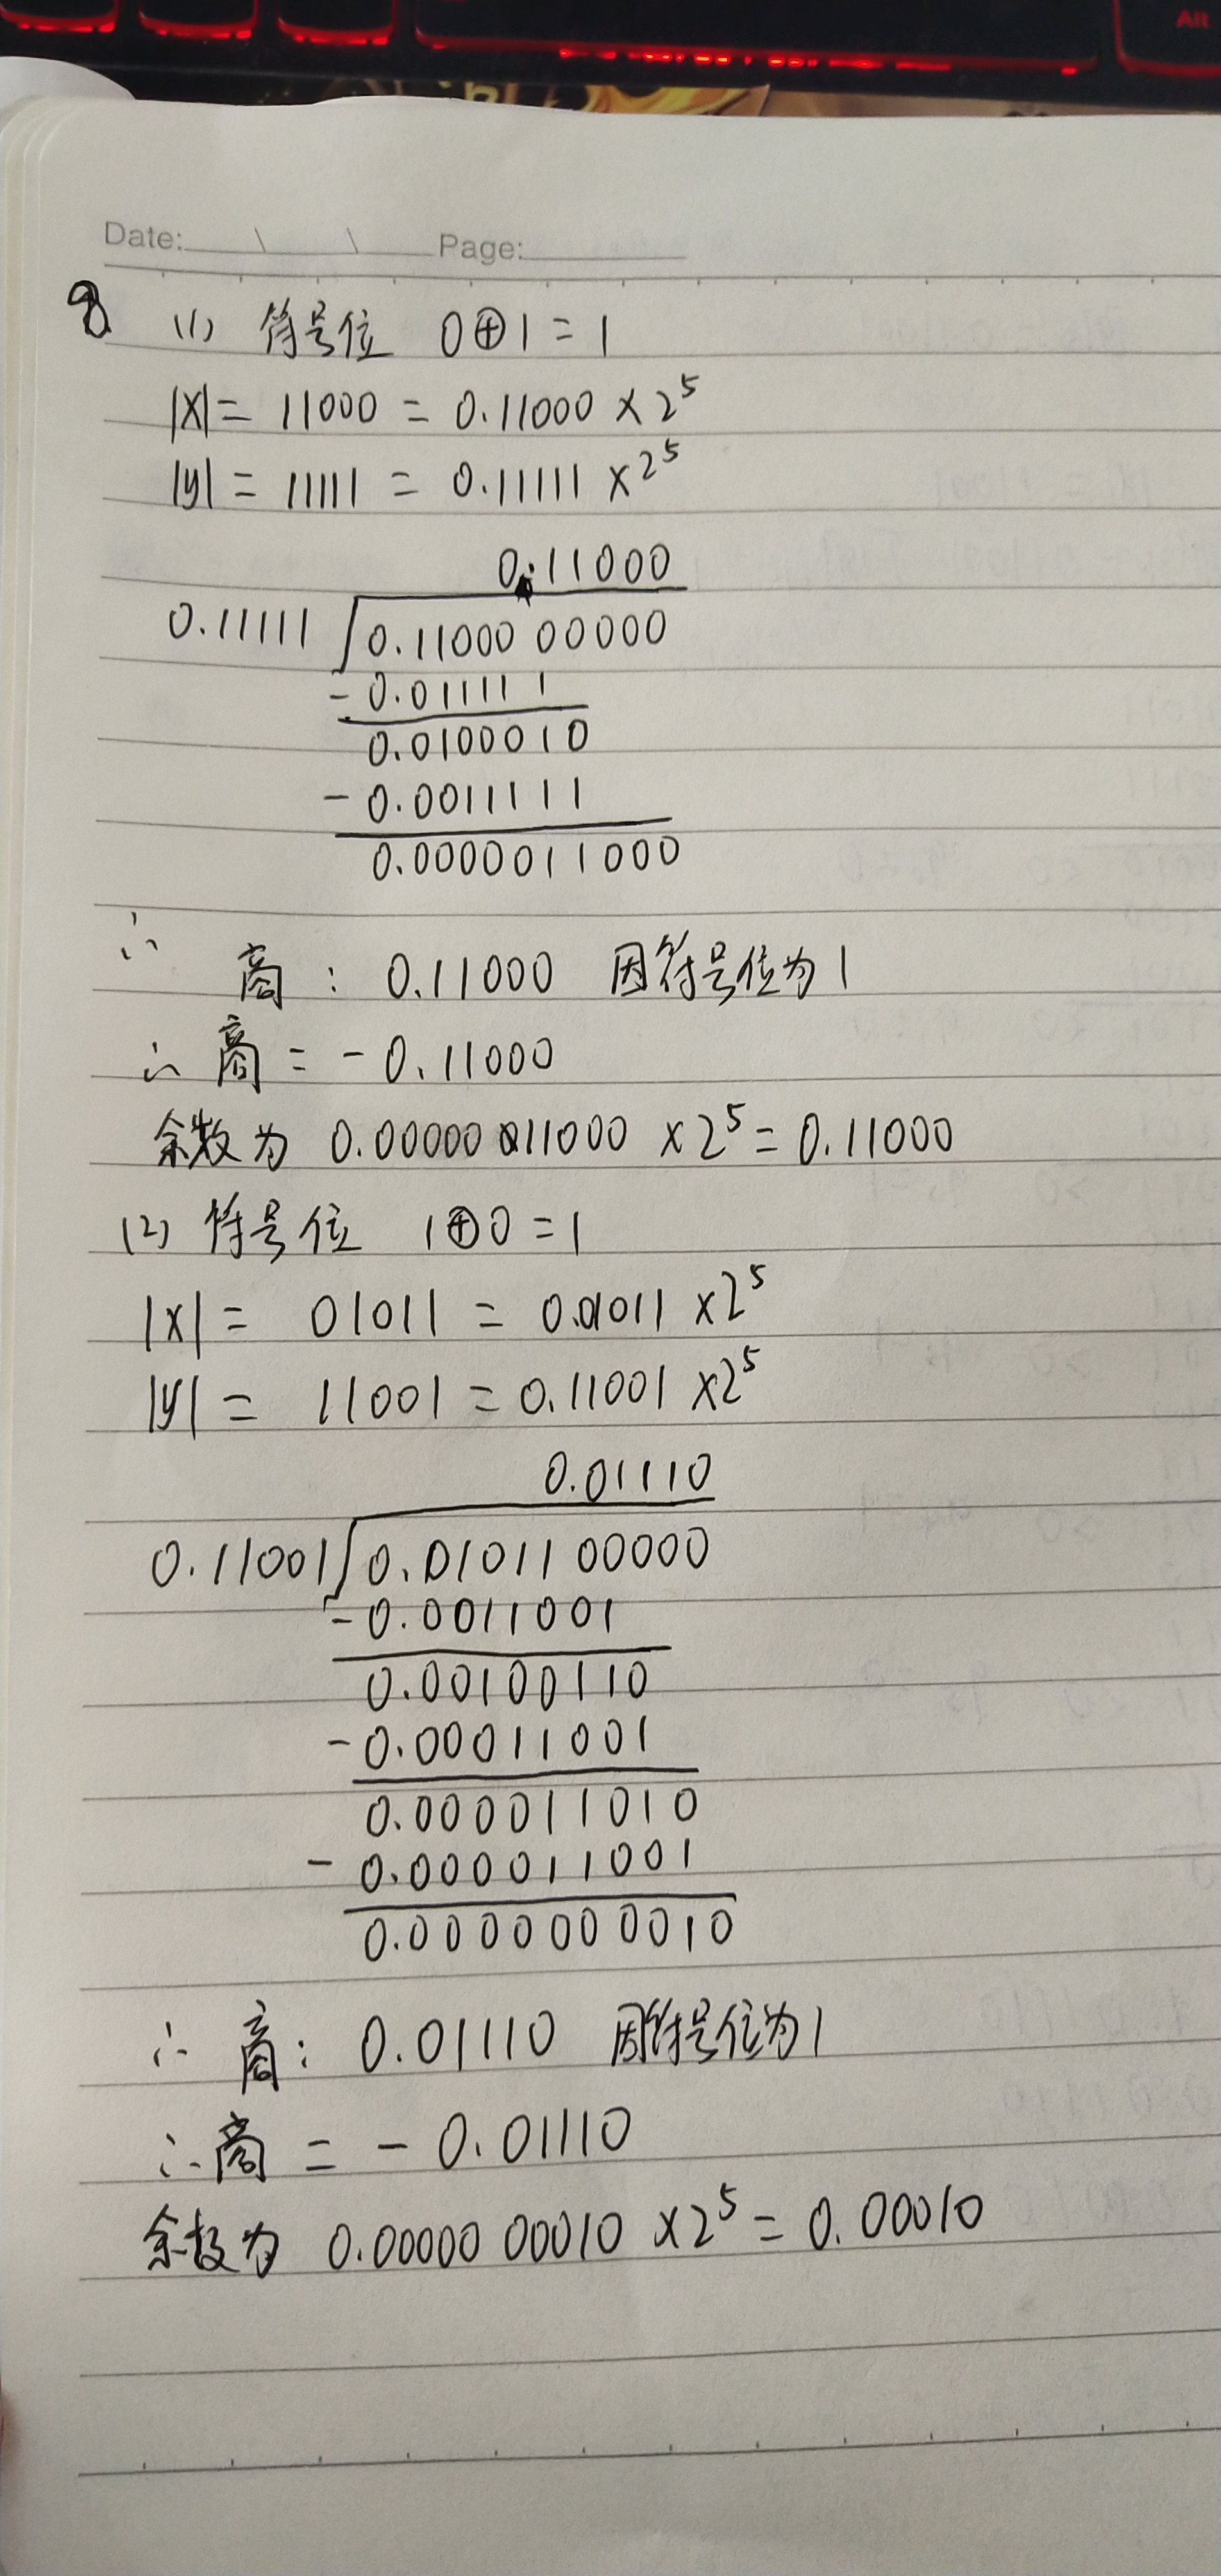 Alt
Date: \ \ Page:
8 (1) 符号位 0⊕1=1
|X|= 11000 = 0.11000 × 2⁵
|y| = 11111 = 0.11111 × 2⁵
0.11000
0.11111 0.11000 00000
- 0.01111 1
0.0100010
- 0.0011111
0.0000011000
∴ 商: 0.11000 因符号位为1
∴ 商 = - 0.11000
余数为 0.00000 011000 × 2⁵ = 0.11000
(2) 符号位 1⊕0=1
|x| = 01011 = 0.01011 × 2⁵
|y| = 11001 = 0.11001 × 2⁵
0.01110
0.11001 0.0101100000
- 0.0011001
0.00100110
- 0.00011001
0.000011010
- 0.000011001
0.0000000010
∴ 商: 0.01110 因符号位为1
∴ 商 = - 0.01110
余数为 0.00000 00010 × 2⁵ = 0.00010